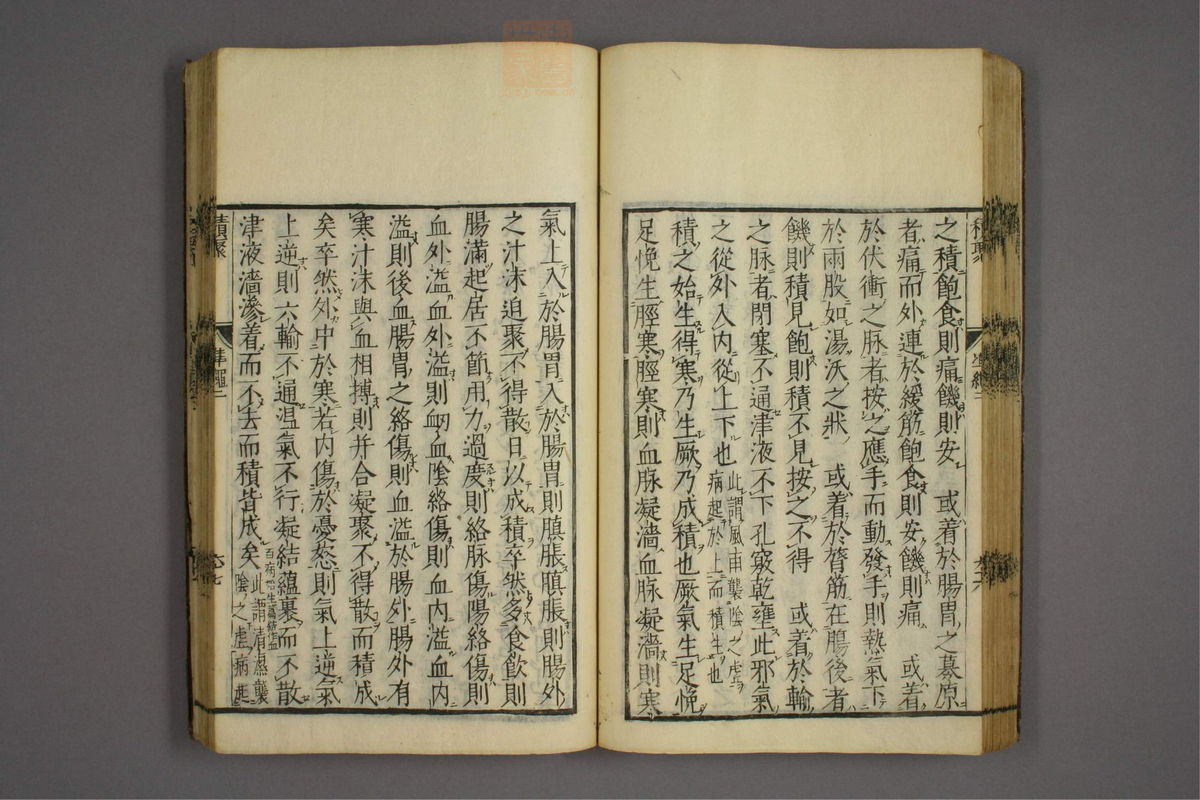 之積飽食則痛饑則安　或着於腸胃之募原
者痛而外連於緩筋飽食則安饑則痛　或着
於伏衝之脉者按之應手而動發手則熱氣下
於兩股如湯沃之狀　或着於膂筋在腸後者
饑則積見飽則積不見按之不得　或着於輸
之脉者閉塞不通津液不下孔竅乾壅此邪氣
之從外入内從上下也此謂風雨襲陰之虛病起於上而積生也
積之始生得寒乃生厥乃成積也厥氣生足悗
足悗生脛寒脛寒則血脉凝濇血脉凝濇則寒
氣上入於腸胃入於腸胃則䐜脹䐜脹則腸外
之汁沫迫聚不得散日以成積卒然多食飲則
腸滿起居不節用力過度則絡脉傷陽絡傷則
血外溢血外溢則衂血陰絡傷則血内溢血内
溢則後血腸胃之絡傷則血溢於腸外腸外有
寒汁沫與血相搏則并合凝聚不得散而積成
矣卒然外中於寒若内傷於憂怒則氣上逆氣
上逆則六輸不通温氣不行凝結蘊裹而不散
津液濇滲着而不去而積皆成矣百病始生篇此謂清濕襲陰之虛病起
積聚